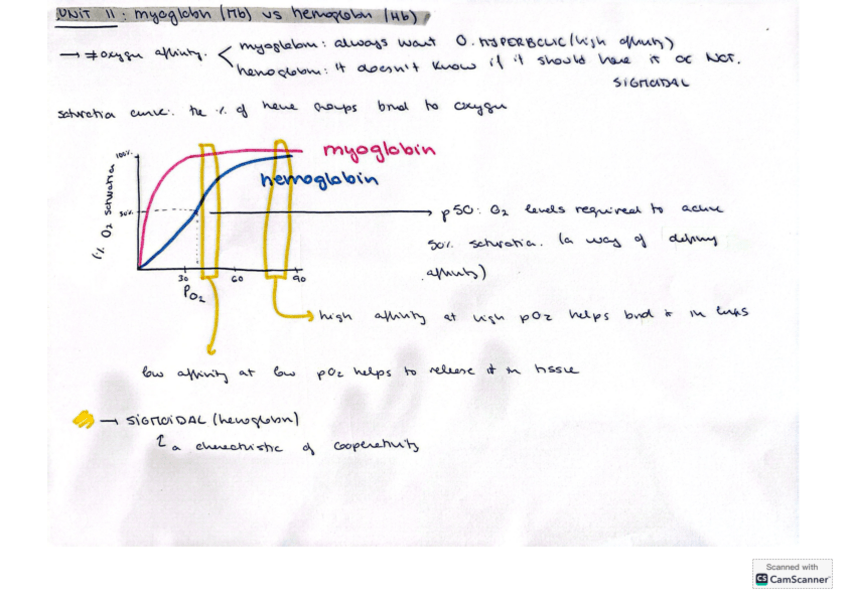 UNIT 11: myoglobin (Mb) vs hemoglobin (Hb)
→ ≠ oxygen affinity. < myoglobin: always want O. HYPERBOLIC (high affinity)
hemoglobin: it doesn't know if it should have it or NOT.
SIGMOIDAL
saturation curve: the % of heme groups bind to oxygen
100%
myoglobin
hemoglobin
% O2 saturation
50%
→ p50: O2 levels required to achive
50% saturation. (a way of defining
affinity)
30 60 90
PO2
→ high affinity at high pO2 helps bind it in lungs
low affinity at low pO2 helps to release it in tissue
→ SIGMOIDAL (hemoglobin)
↑ a characteristic of cooperativity
Scanned with
CS CamScanner